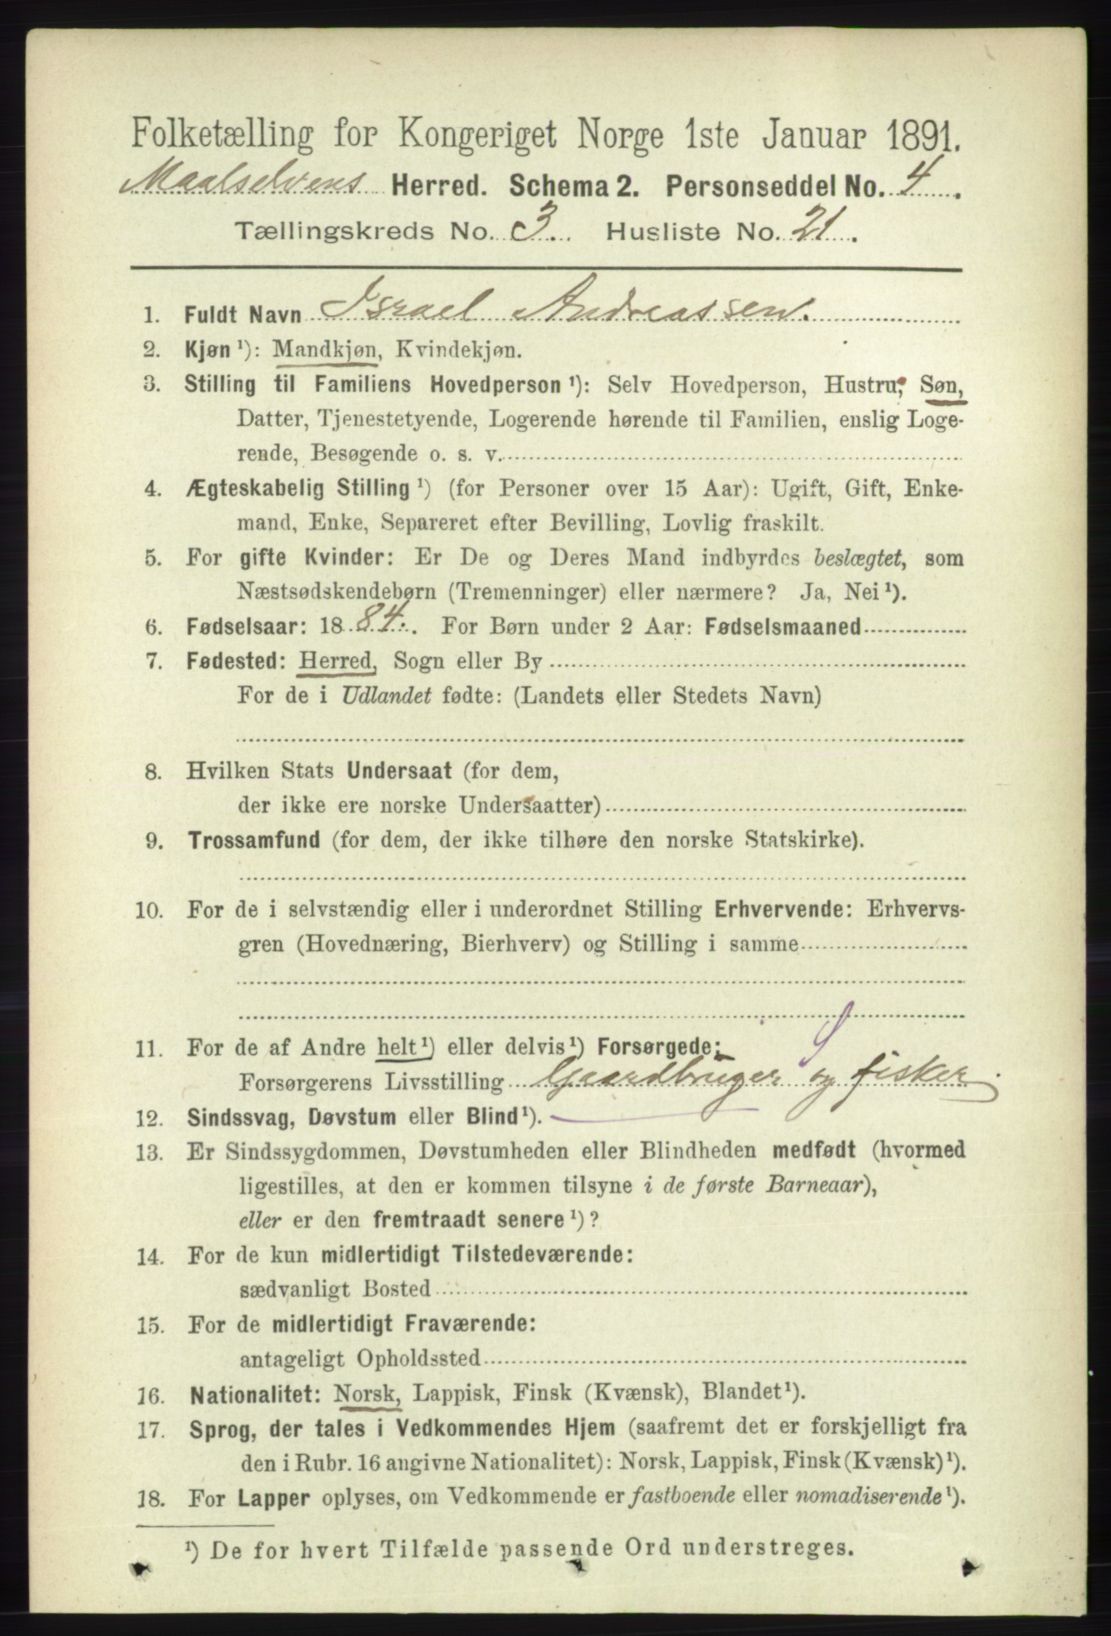 Folketælling for Kongeriget Norge 1ste Januar 1891.
Maalselvens Herred. Schema 2. Personseddel No. 4.
Tællingskreds No. 3. Husliste No. 21.
1. Fuldt Navn Israel Andreassen.
2. Kjøn ¹): Mandkjøn, Kvindekjøn.
3. Stilling til Familiens Hovedperson ¹): Selv Hovedperson, Hustru, Søn,
Datter, Tjenestetyende, Logerende hørende til Familien, enslig Loge-
rende, Besøgende o. s. v.
4. Ægteskabelig Stilling ¹) (for Personer over 15 Aar): Ugift, Gift, Enke-
mand, Enke, Separeret efter Bevilling, Lovlig fraskilt.
5. For gifte Kvinder: Er De og Deres Mand indbyrdes beslægtet, som
Næstsødskendebørn (Tremenninger) eller nærmere? Ja, Nei ¹).
6. Fødselsaar: 1884. For Børn under 2 Aar: Fødselsmaaned
7. Fødested: Herred, Sogn eller By
For de i Udlandet fødte: (Landets eller Stedets Navn)
8. Hvilken Stats Undersaat (for dem,
der ikke ere norske Undersaatter)
9. Trossamfund (for dem, der ikke tilhøre den norske Statskirke).
10. For de i selvstændig eller i underordnet Stilling Erhvervende: Erhvervs-
gren (Hovednæring, Bierhverv) og Stilling i samme
11. For de af Andre helt ¹) eller delvis ¹) Forsørgede: S
Forsørgerens Livsstilling Gaardbruger og fisker.
12. Sindssvag, Døvstum eller Blind ¹).
13. Er Sindssygdommen, Døvstumheden eller Blindheden medfødt (hvormed
ligestilles, at den er kommen tilsyne i de første Barneaar),
eller er den fremtraadt senere ¹)?
14. For de kun midlertidigt Tilstedeværende:
sædvanligt Bosted
15. For de midlertidigt Fraværende:
antageligt Opholdssted
16. Nationalitet: Norsk, Lappisk, Finsk (Kvænsk), Blandet ¹).
17. Sprog, der tales i Vedkommendes Hjem (saafremt det er forskjelligt fra
den i Rubr. 16 angivne Nationalitet): Norsk, Lappisk, Finsk (Kvænsk) ¹).
18. For Lapper oplyses, om Vedkommende er fastboende eller nomadiserende ¹).
¹) De for hvert Tilfælde passende Ord understreges.